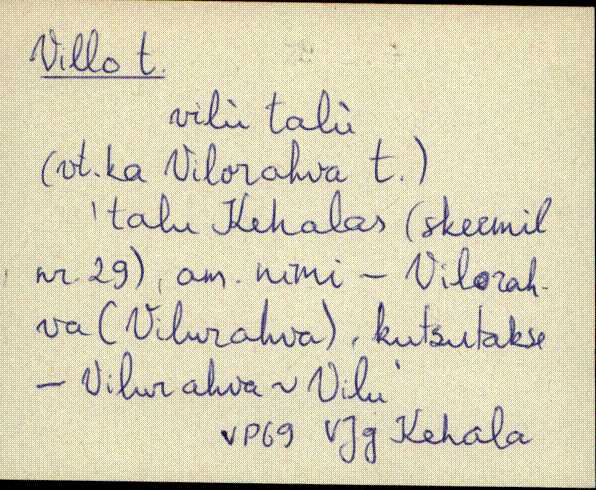 Villo t.
vilù talù
(vt. ka Vilorahva t.)
'talu Kehalas (skeemil
nr. 29), am. nimi – Vilorah-
va (Vilurahva), kutsutakse
– Vilurahva ~ Vilu'
VP69 VJg Kehala